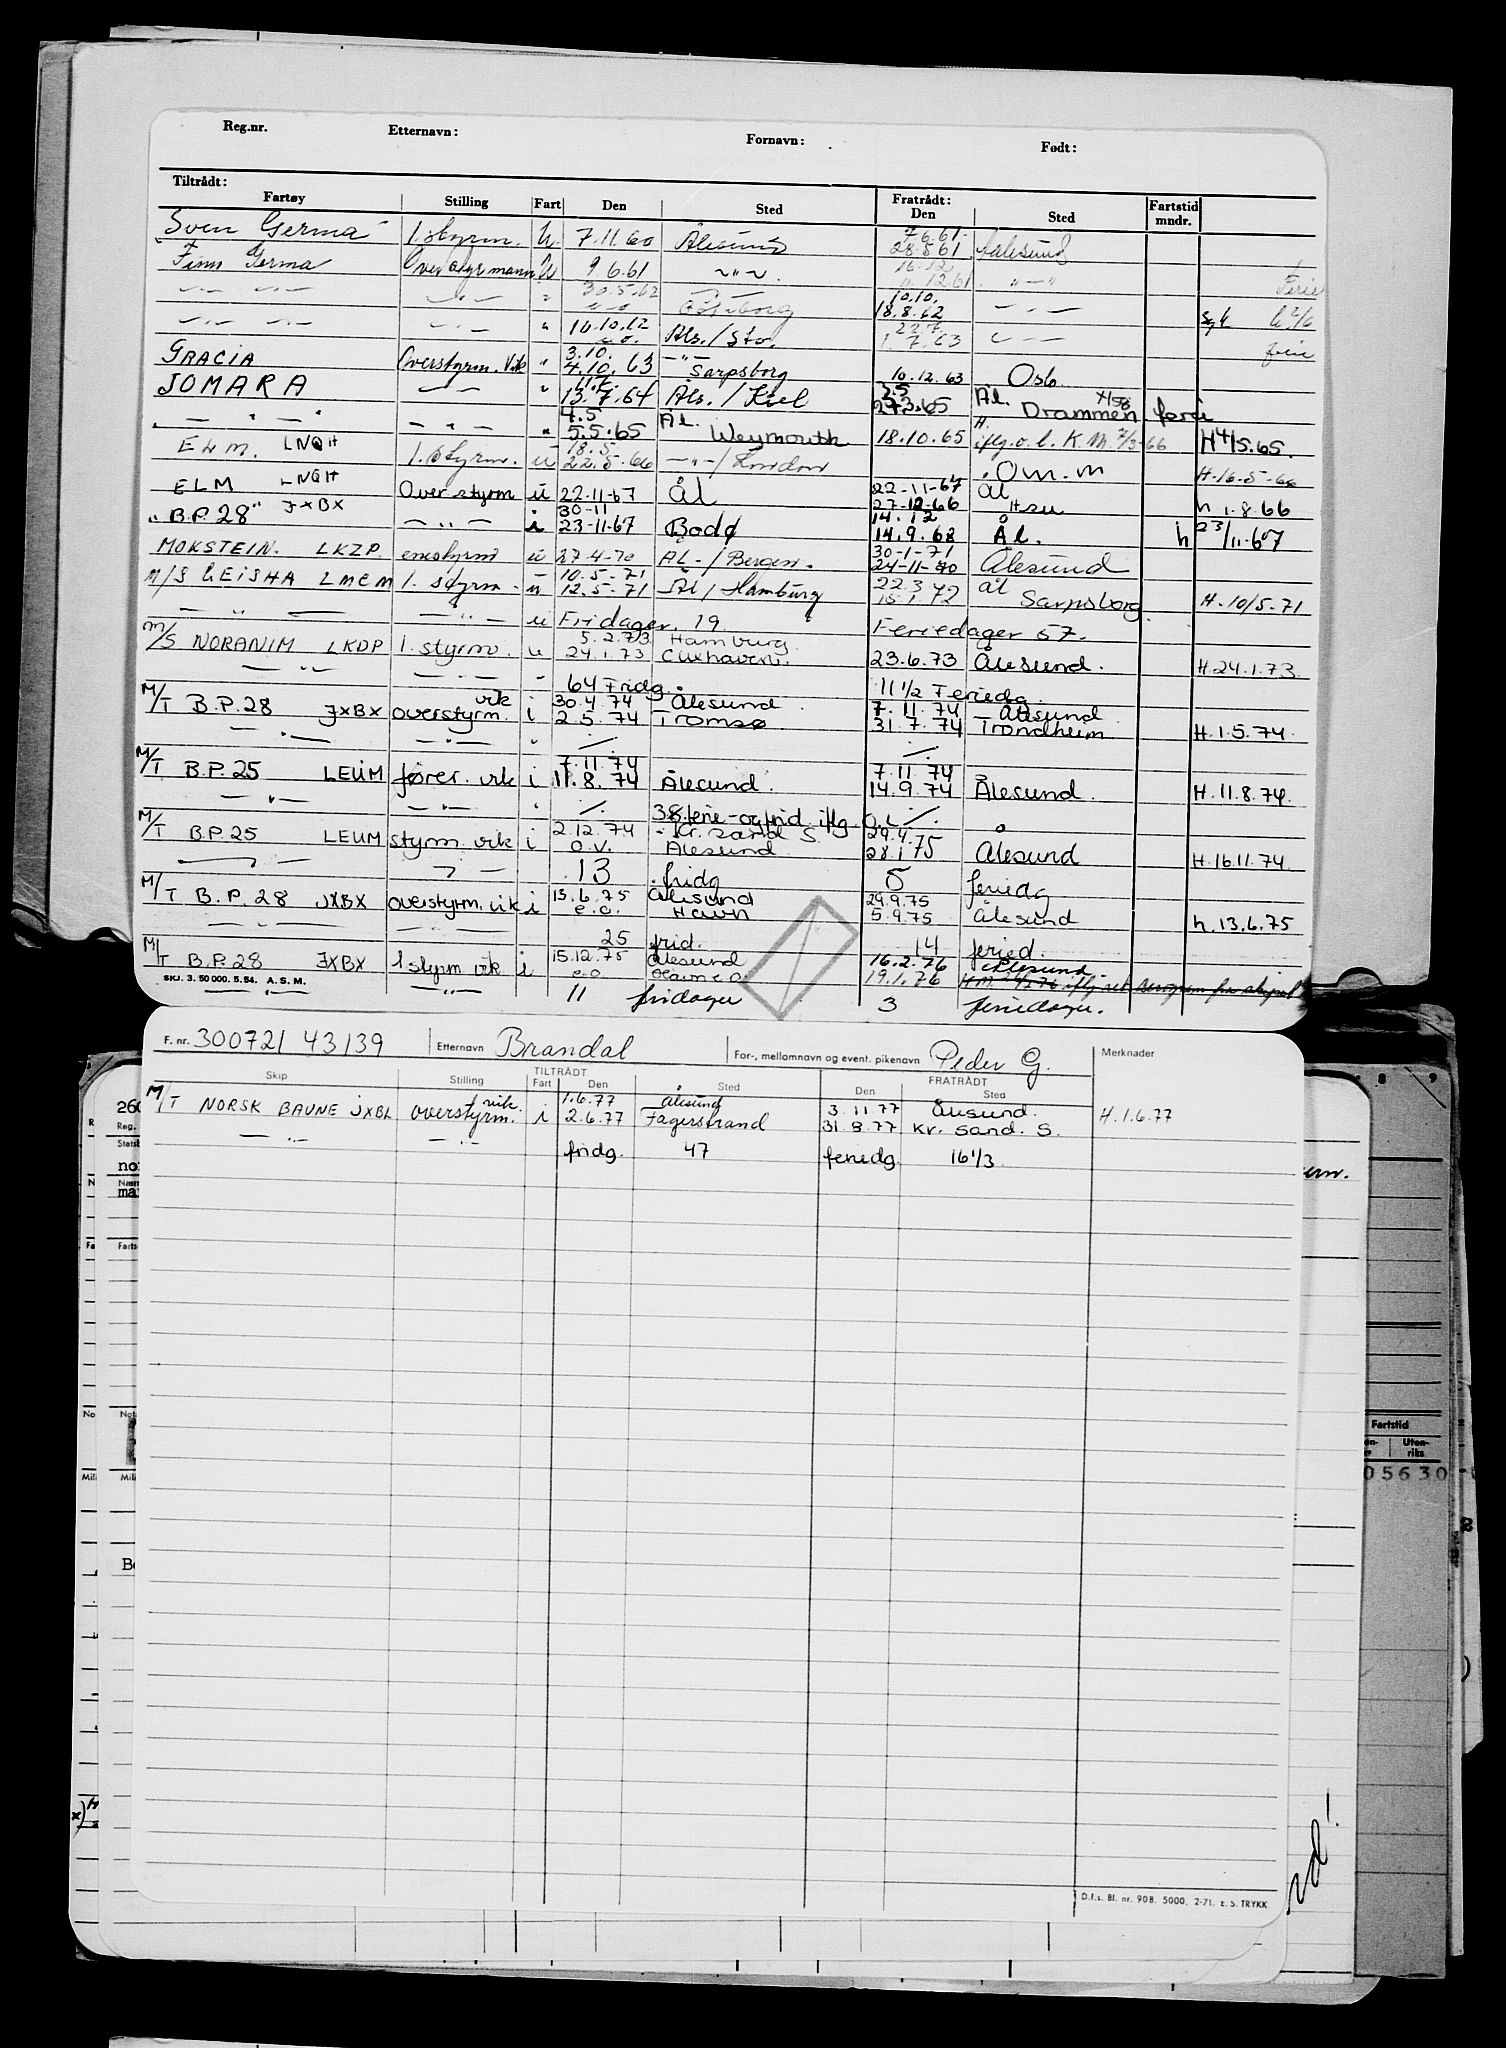 Reg.nr. Etternavn: Fornavn: Født:
Tiltrådt: Fratrådt: Fartstid
Fartøy Stilling Fart Den Sted Den Sted mndr.
7.6.61.
Sven Germa 1. styrm. U. 7.11.60 Ålesund 28.5.61 Aalesund
16.12
Finn Germa Overstyrmann U 9.6.61 ~"~ 12.61 "—" Ferie
30.5.62 10.10.
—"— —"— —"— " Göteborg 18.8.62 —"—
22.7.
—"— —"— —"— " 10.10.62 Åls./Sto. 1.7.63 —"— ferie
3.10. —"—
GRACIA Overstyrm. Vik " 4.10.63 Sarpsborg 10.12.63 Osb.
11.7. 3.5
JOMARA —"— " 13.7.64 Åls. / Kiel 27.3.65 Ål. Drammen ferie
4.5 Ål. H.
—"— —"— " 5.5.65 Weymouth 18.10.65 iflg. o. l. K.M. 7/3-66 H4/5.65.
18.5
ELM. LNQH 1. Styrm. u 22.5.66 —"—/London Om. m H-16-5-66
22-11-67 Ål
ELM LNQH Overstyrm u 22-11-67 ÅL 27-12-66 Hsu h 1.8.66
30-11 14.12
"B.P. 28" JXBX —"— i 23-11-67 Bodø 14.9.68 Ål. h 23/11-67
30-1-71
MOKSTEIN. LKZP. enestyrm u 27-4-70 ÅL-/Bergen. 24-11-70 Ålesund
10.5-71 22.3 ål
M/S GEISHA LMCM 1. styrm- u 12.5-71 Ål / Hamburg 15.1.72 Sarpsborg H.10/5-71
—"— —"— u Fridager. 19. Feriedager 57.
5.2.73 Hamburg.
M/S NORANIM LKDP 1. styrm. u 24.1.73 Cuxhaven. 23.6.73 Ålesund. H.24.1.73.
—"— —"— " 64 Fridg. 11 1/2 Feriedg.
vik 30.4.74 Ålesund 7.11.74 Ålesund
M/T B.P. 28 JXBX overstyrm. i 2.5.74 Tromsø 31.7.74 Trondheim H.1.5.74.
—"— —"— " ./. ./.
7.11.74 7.11.74
M/T B.P. 25 LEUM fører. vik i 11.8.74 Ålesund. 14.9.74 Ålesund. H.11.8.74.
—"— —"— " ./. 38 ferie-og frid. iflg o.l ./.
2.12.74 - Kr. sand S 29.4.
M/T B.P. 25 LEUM styrm. vik i o.v. Ålesund 28.1.75 Ålesund H.16.11.74.
13 fridg 5 feriedg
13.6.75 Ålesund 29.9.75
M/T B.P. 28 JXBX overstyrm. vik i e.o. Havn 5.9.75 Ålesund h.13.6.75
—"— —"— 25 frid. 14 feried.
15.12.75 Ålesund 16.2.76 Ålesund
M/T B.P. 28 JXBX 1 styrm vik i e.o. 19.1.76
SKJ. 3. 50 000. 5.54. A.S.M.
—"— —"— 11 fridager 3 feriedager.
F. nr. 300721 43139 Etternavn Brandal For-, mellomnavn og event. pikenavn Peder G. Merknader
TILTRÅDT FRATRÅDT
Skip Stilling Fart Den Sted Den Sted
vik. 1.6.77 Ålesund 3.11.77 Ålesund.
M/T NORSK BAUNE JXBL overstyrm. i 2.6.77 Fagerstrand 31.8.77 Kr. Sand. S. H.1.6.77
—"— —"— fridg. 47 feriedg. 16 1/3
8 9
Fartstid
Uten-
riks
05630
D.f.s. Bl. nr. 90B. 5000. 2-71. E. S. TRYKK